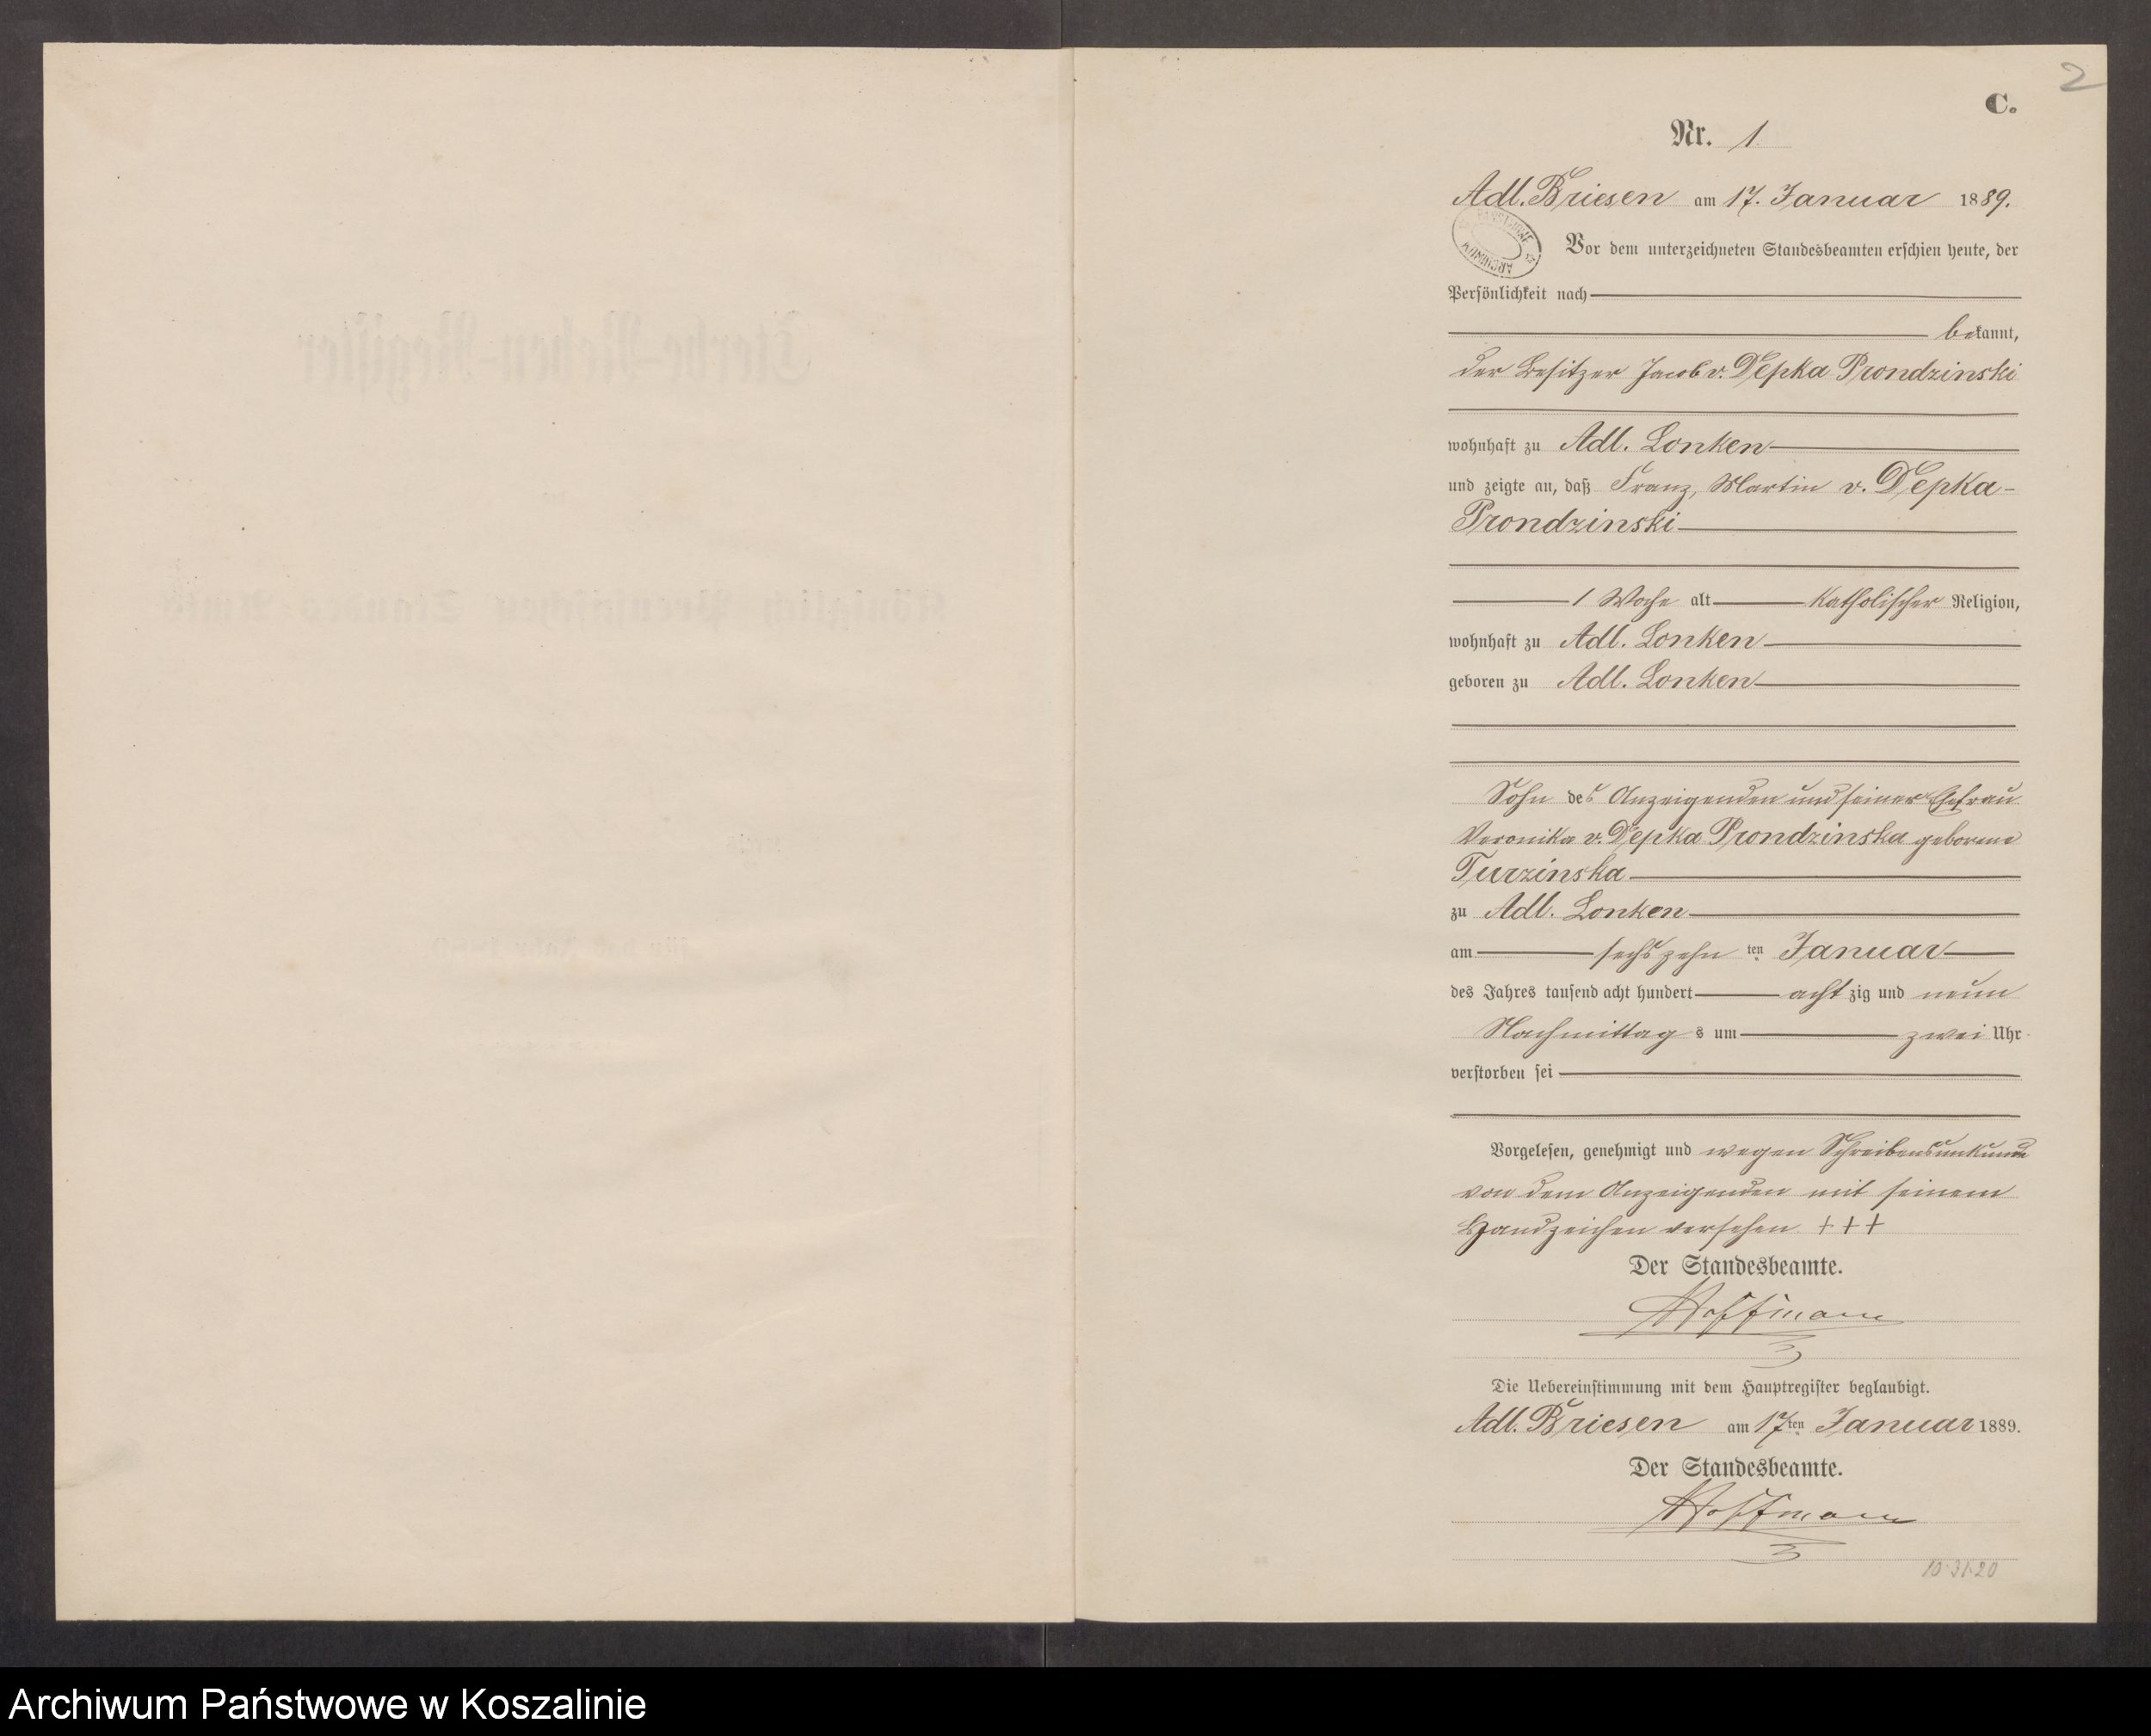 2
C.
Nr. 1
Adl. Briesen am 17. Januar 1889.
Vor dem unterzeichneten Standesbeamten erschien heute, der
Persönlichkeit nach
bekannt,
der Besitzer Jacob v. Depka Prondzinski
wohnhaft zu Adl. Lonken
und zeigte an, daß Franz, Martin v. Depka-
Prondzinski
1 Woche alt katholischer Religion,
wohnhaft zu Adl. Lonken
geboren zu Adl. Lonken
Sohn des Anzeigenden und seiner Ehefrau
Veronika v. Depka Prondzinska geborene
Turzinska
zu Adl. Lonken
am sechszehn ten Januar
des Jahres tausend acht hundert achtzig und neun
Nachmittags um zwei Uhr
verstorben sei
Vorgelesen, genehmigt und wegen Schreibensunkunde
von dem Anzeigenden mit seinem
Handzeichen versehen +++
Der Standesbeamte.
Hoffmann
Die Uebereinstimmung mit dem Hauptregister beglaubigt.
Adl. Briesen am 17ten Januar 1889.
Der Standesbeamte.
Hoffmann
10.31.20
Archiwum Państwowe w Koszalinie